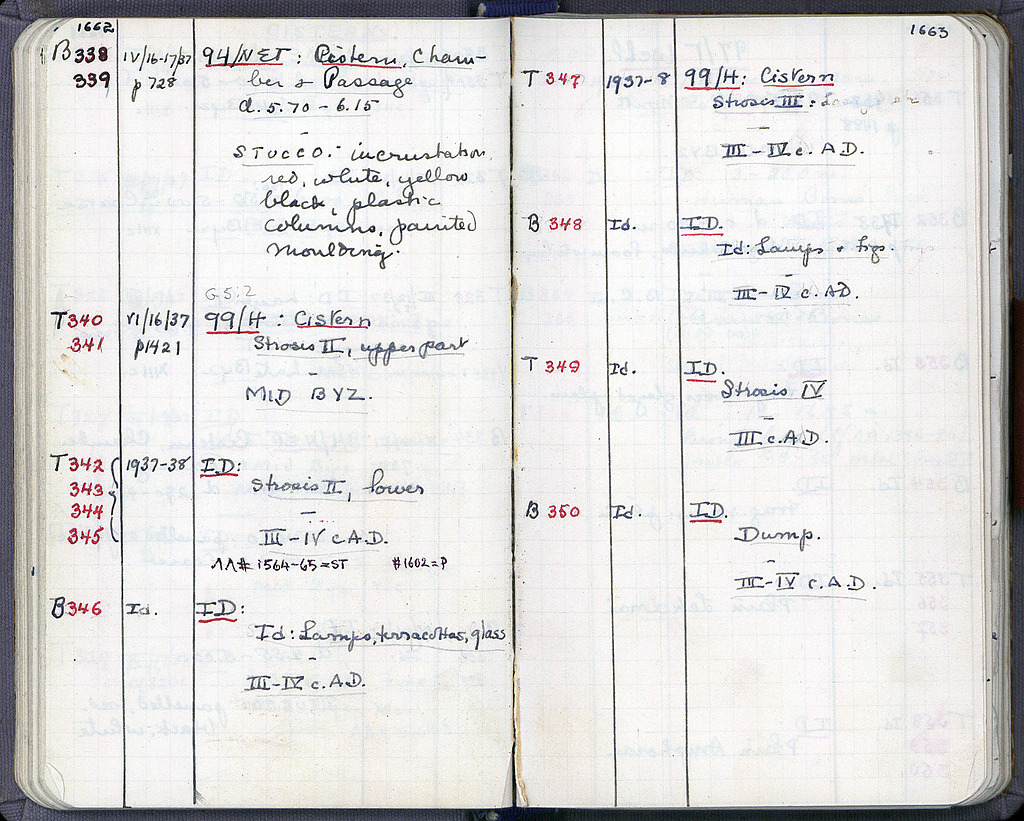 1662
B 338 IV/16-17/37 94/NET: Cistern, Cham-
339 p 728 ber & Passage
d. 5.70 - 6.15
–
STUCCO: incrustation,
red, white, yellow
black, plastic
columns, painted
moulding.
G-5:2
T 340 VI/16/37 99/H: Cistern
341 p1421 Strosis II, upper part
MID BYZ.
T 342 1937-38 ID:
343 Strosis II, lower
344 –
345 III-IV c A.D.
ΛΛ# 1564-65=ST #1602=P
B 346 Id. ID:
Id: Lamps, terracottas, glass
–
III-IV c. A.D.
1663
T 347 1937-8 99/H: Cistern
Strosis III:
–
III-IV c. AD.
B 348 Id. ID.
Id: Lamps & figs.
–
III-IV c. AD.
T 349 Id. ID.
Strosis IV
–
III c. A.D.
B 350 Id. ID.
Dump.
–
III-IV c. A.D.